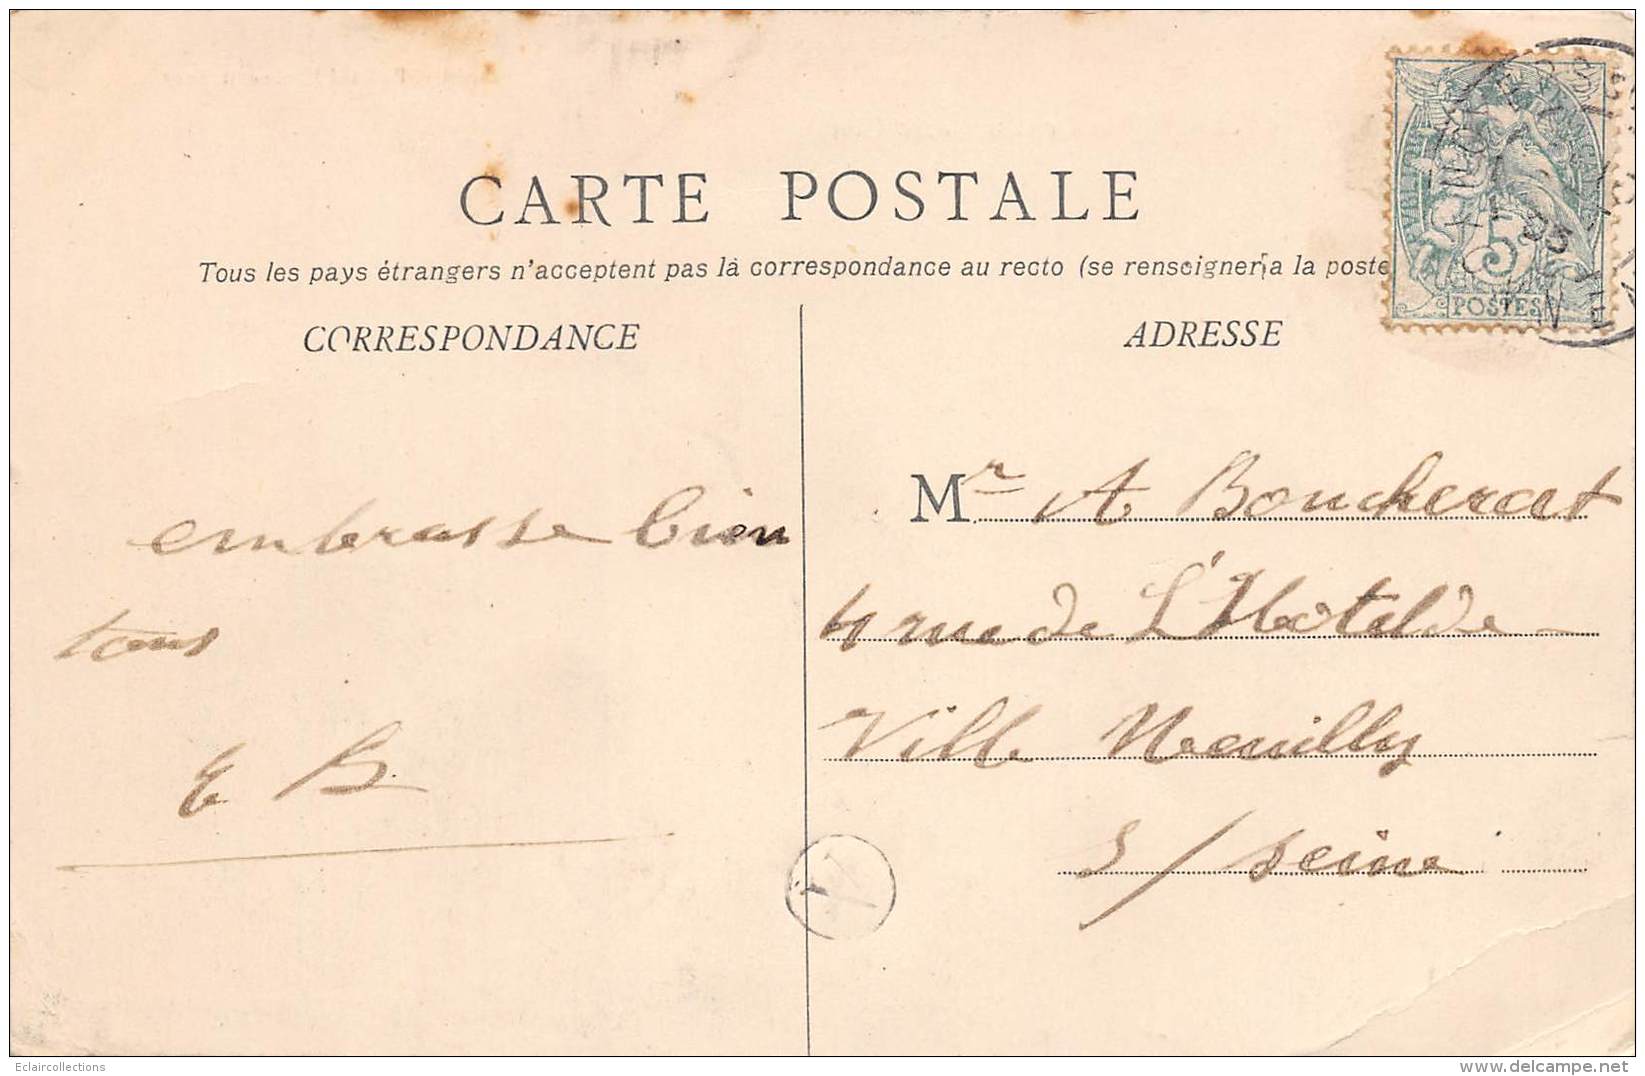 CARTE POSTALE
Tous les pays étrangers n'acceptent pas la correspondance au recto (se renseigner a la poste
CORRESPONDANCE
ADRESSE
5
POSTES
embrasse bien
tous
E B.
Mr A Boucherat
4 rue de L'Hotel de
Ville Neuilly
s/ Seine
Eclaircollections
delcampe.net